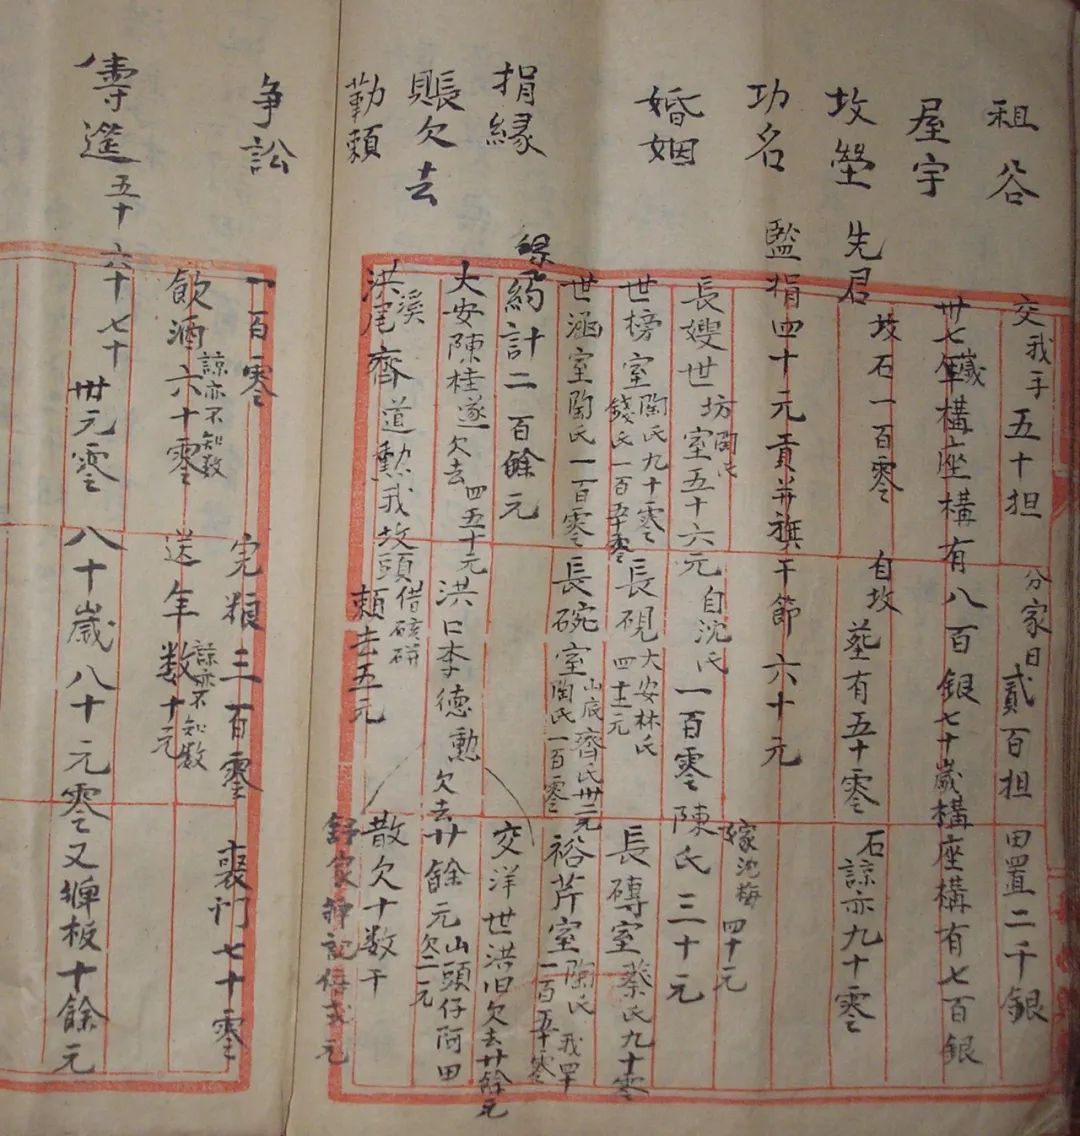 租谷 交我手五十担 分家日貳百担 田置二千銀
屋宇 卅七歲構座構有八百銀 七十歲構座構有七百銀
坟塋 先君坟石一百零 自坟塋有五十零 石諒亦九十零
功名 監捐四十元 貢并旗干節六十元
婚姻 長嫂世坊室陶氏五十六元 自沈氏一百零 陳氏三十元 嫁沈梅四十元
世榜室陶氏九十零 錢氏一百五十零 長硯大安林氏四十二元 山底齊氏卅二元 長磚室蔡氏九十零
世涵室陶氏一百零 長碗室陶氏一百零 裕芹室陶氏一百五十零
捐緣 緣約計二百餘元
賬欠去 大安陳桂遂欠去四五十元 洪口李德勲欠去廿餘元 山頭仔阿田欠二元
交洋世洪旧欠去廿餘元
散欠十数千
勤賴 洪溪尾齊道勲我坟頭借磚 賴去五元
爭訟 一百零 完粮三百零 衷门七十零
飲酒六十零 諒亦不知数 送年数十元 諒亦不知数
壽筵 五十 六十 七十 卅元零 八十歲八十元零 又板十餘元